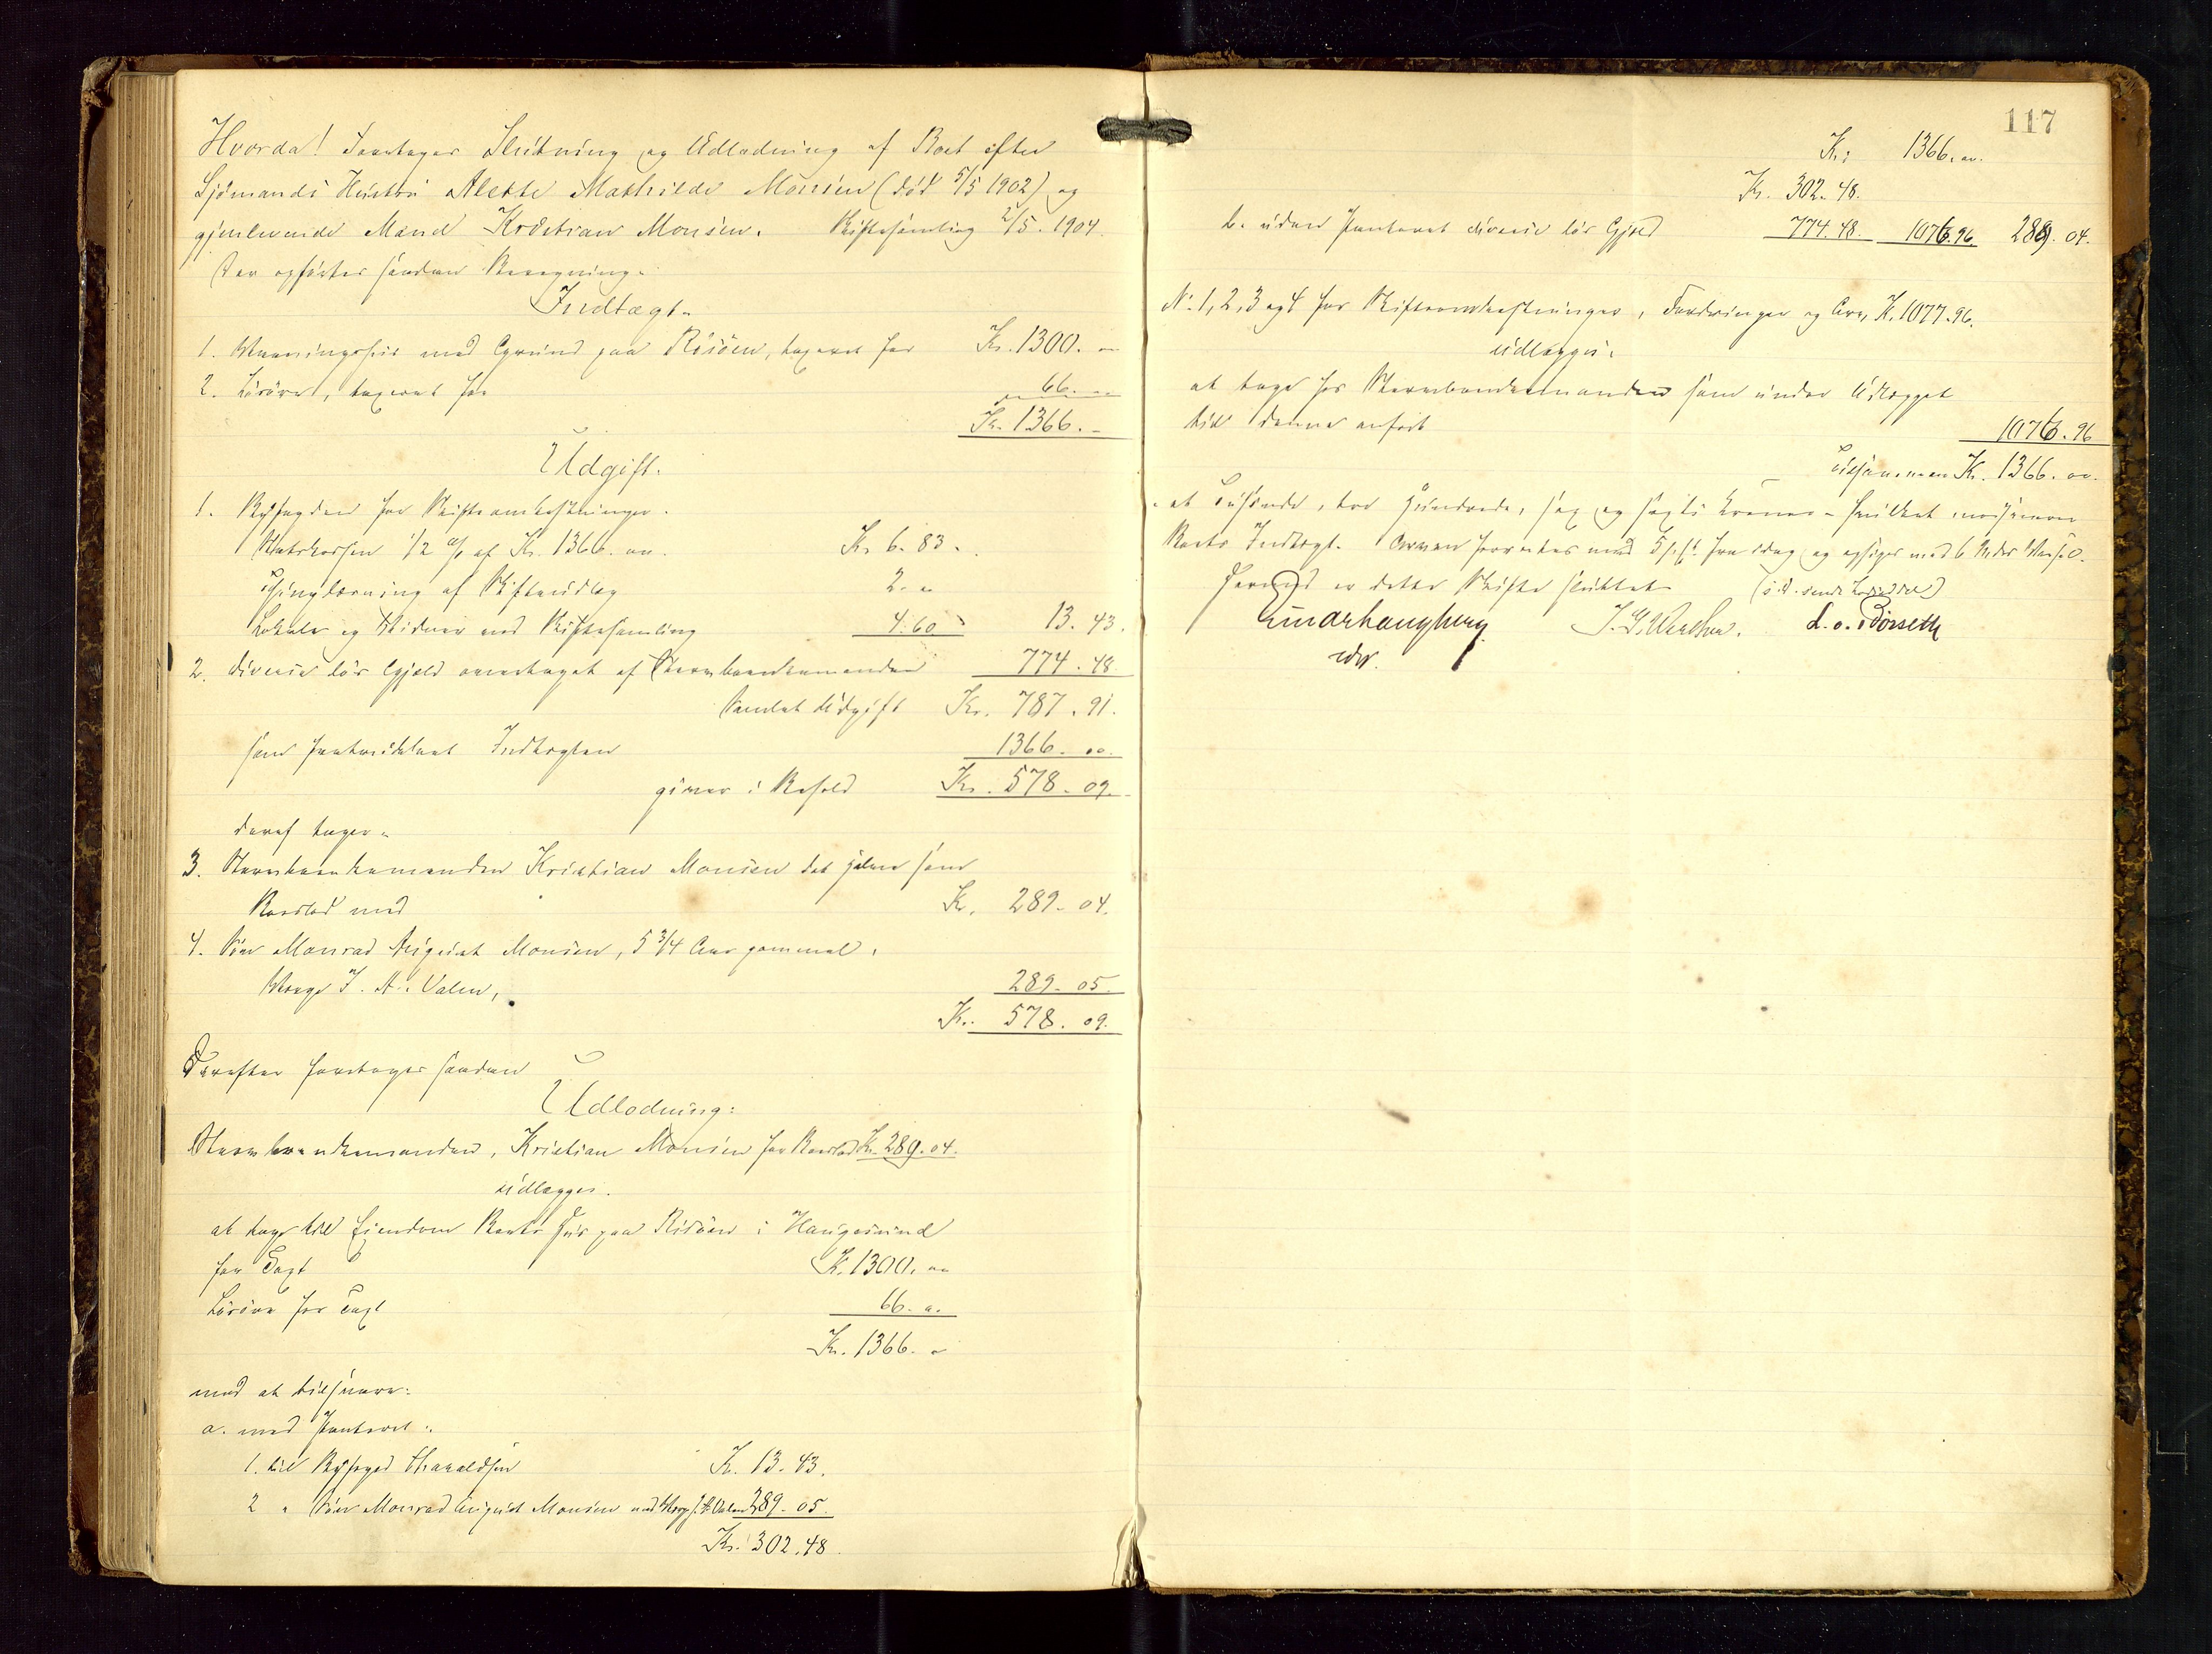 Hvorda! Foretoges Slutning og Udlodning af Boet efter
Sjømands Hustru Alette Mathilde Monsen (død 5/5 1902) og
gjenlevende Mand Kristian Monsen. Skiftesamling 2/5. 1904.
Der opførtes saadan Beregning.
Indtægt.
1. Vaaningshus med Grund paa Risøen, taxeret for Kr. 1300. "
2. Løsøre, taxeret for 66. "
Kr. 1366. -
Udgift.
1. Byfogden for Skifteomkostninger.
Statskassen 1/2 % af Kr. 1366. oo. Kr. 6. 83.
Thinglæsning af Skifteudlæg 2. "
Lokale og Vidner ved Skiftesamling 4. 60 13. 43.
2. diverse løs Gjæld overtaget af Stervboenkemanden 774. 48.
Samlet Udgift Kr. 787. 91.
som fratrukket Indtægten 1366. oo.
giver i Behold Kr. 578. 09.
deraf tager.
3. Stervboenkemanden Kristian Monsen det halve som
Boeslod med Kr. 289. 04.
4. Søn Monrad August Monsen, 5 3/4 Aar gammel.
Værge J. A. Valen, 289. 05.
Kr. 578. 09.
Derefter foretoges saadan
Udlodning:
Stervboenkemanden, Kristian Monsen for Boeslod Kr. 289. 04.
udlægges.
at tage til Eiendom Boets Hus paa Risøen i Haugesund
for Taxt Kr. 1300. oo
Løsøre for Taxt 66. o.
Kr. 1366. "
mod at tilsvare:
a. med Panteret:
1. til Byfoged Tharaldsen Kr. 13. 43.
2 " Søn Monrad August Monsen ved Værge J. A. Valen 289. 05.
Kr. 302. 48.
117
Kr: 1366. oo.
Kr. 302. 48.
b. uden Panteret diverse løs Gjæld 774. 48. 1076. 96 289. 04.
No 1, 2, 3 og 4 for Skifteomkostninger, Fordringer og Arv, Kr. 1077. 96.
udlægges:
at tage hos Stervboenkemanden som under Udlægget
til denne anført 1076. 96
Tilsammen Kr. 1366. oo.
et Tusinde, tre Hundrede, sex og sexti Kroner - hvilket modsvarer
Boets Indtægt. Arven forrentes med 5 pCt. fra idag og opsiges med 6 Mdrs Varsel.
Hermed er dette Skifte sluttet
Einar Haugberg
cdr.
L. o. Børseth